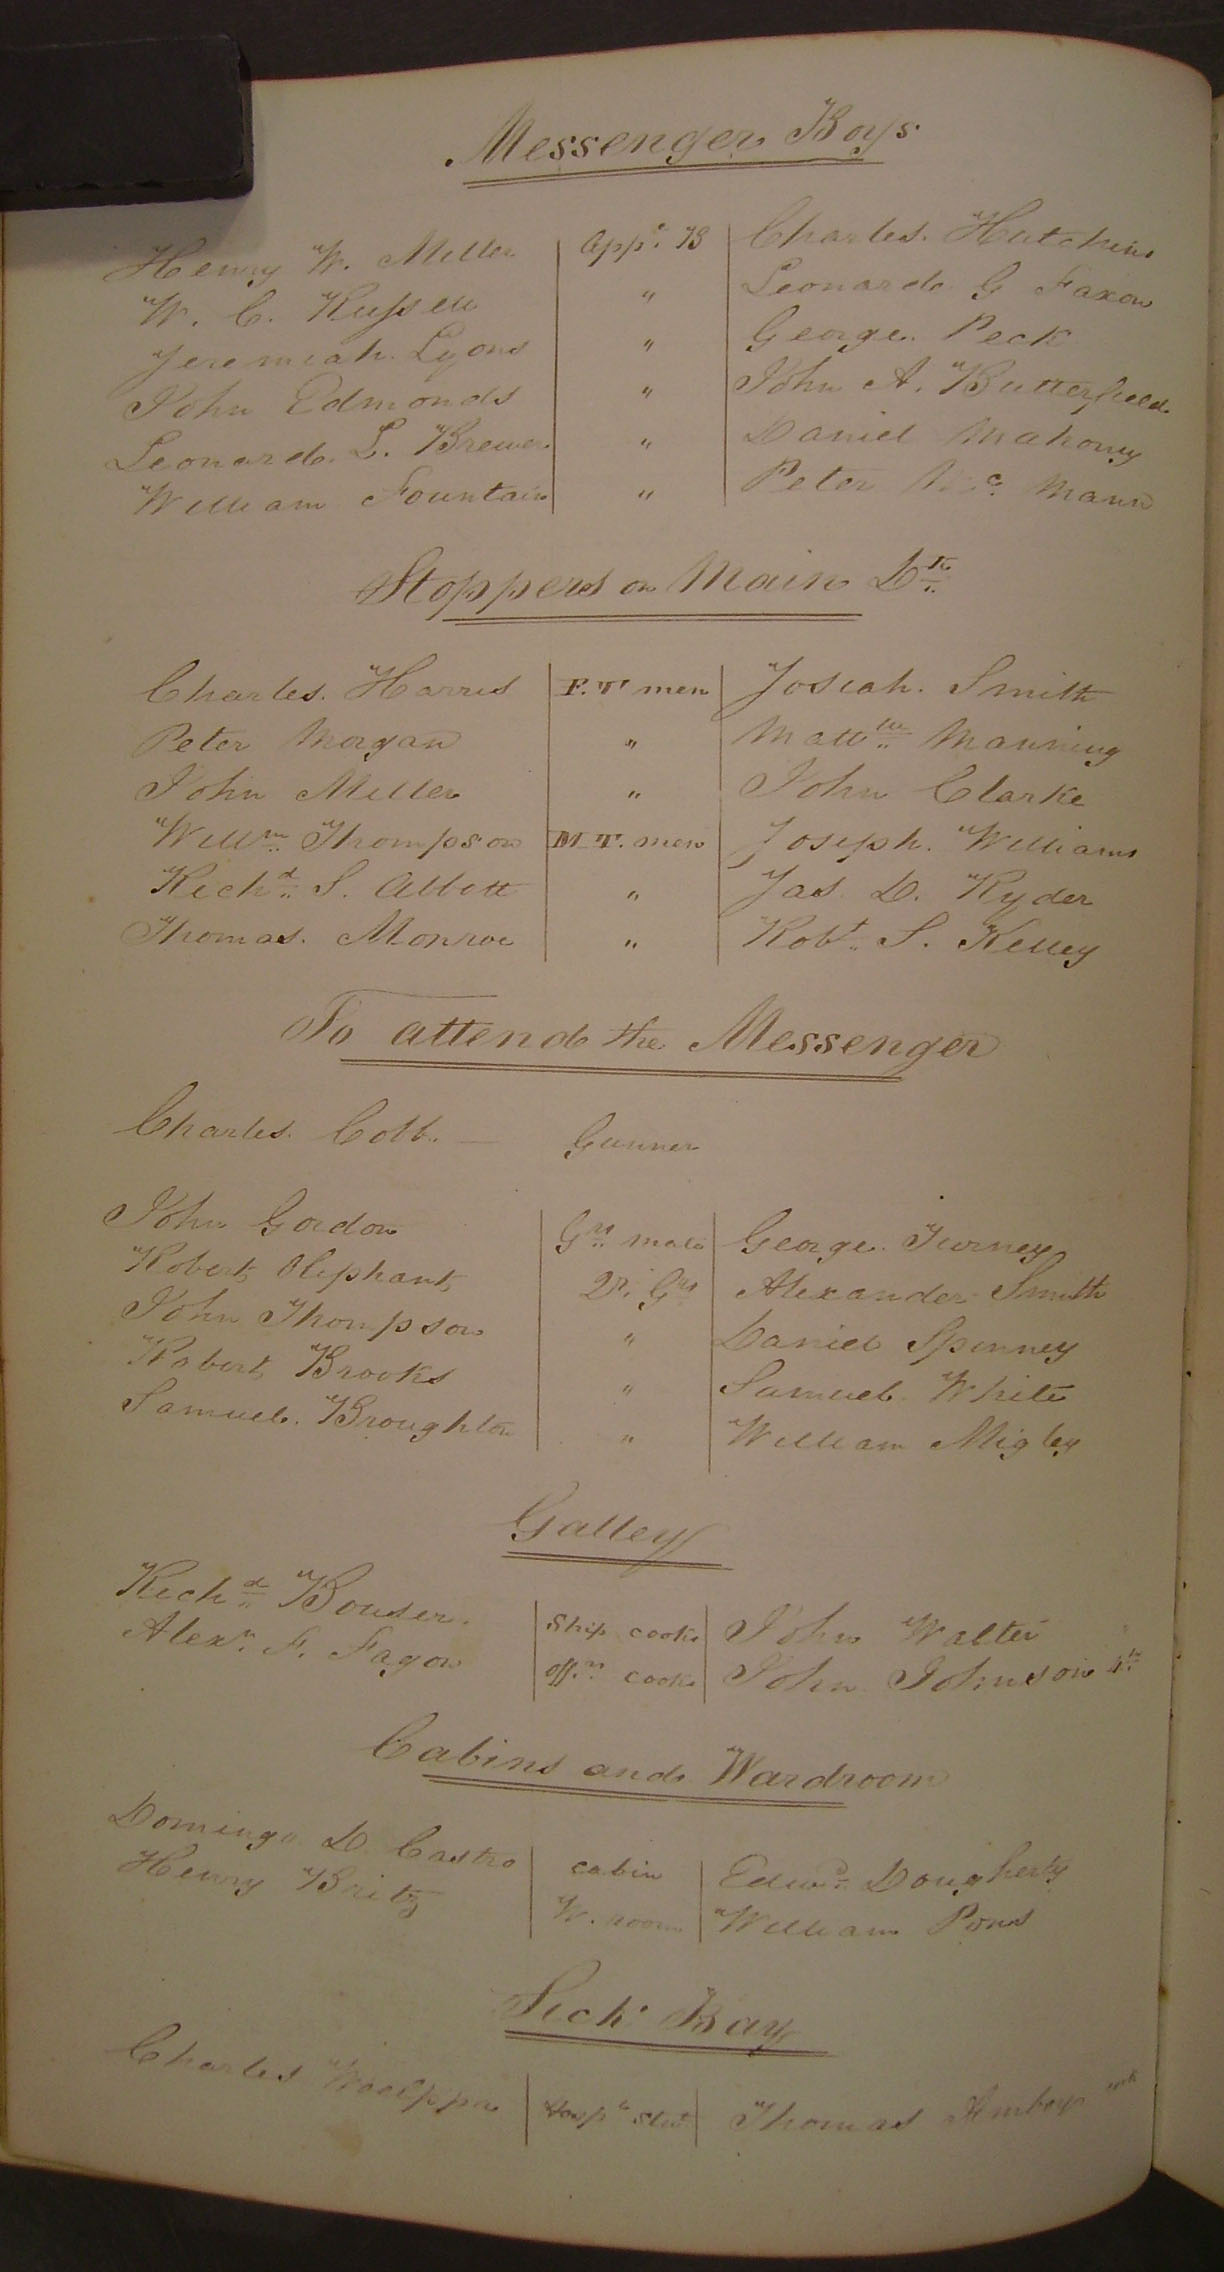 Messenger Boys
Henry W. Miller App.t B Charles Hutchins
W. C. Russell " Leonard G Faxon
Jeremiah Lyons " George Peck
John Edmonds " John A. Butterfield
Leonard L. Brewer " Daniel Mahony
William Fountain " Peter Mc Mann
Stoppers on Main Dk
Charles Harris F. T men Josiah Smith
Peter Morgan " Matt.w Manning
John Miller " John Clarke
Will.m Thompson M T. men Joseph Williams
Rich.d S. Abbott " Jas D. Ryder
Thomas Monroe " Rob.t S. Kelley
To attend the Messenger
Charles Cobb — Gunner
John Gordon G.rs mate George Turney
Robert Oliphant Qr. Grs Alexander Smith
John Thompson " Daniel Spinney
Robert Brooks " Samuel White
Samuel Broughton " William Migley
Galley
Rich.d Bouser Ship cook John Walter
Alex.r F. Fagon off.rs cook John Johnson 4th
Cabins and Wardroom
Domingo D Castro cabin Edw.d Dougherty
Henry Britz W. room William Pons
Sick Bay
Charles Hosp.l Stwd Thomas Amboy